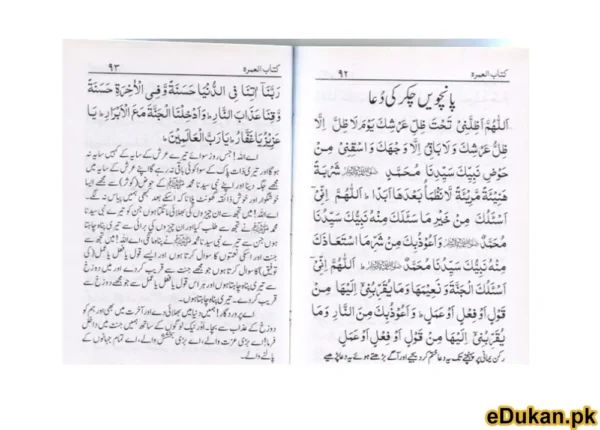 ۹۲ کتاب العمرہ
پانچویں چکر کی دُعا
اَللّٰهُمَّ اَظِلَّنِيْ تَحْتَ ظِلِّ عَرْشِكَ يَوْمَ لَا ظِلَّ اِلَّا
ظِلُّ عَرْشِكَ وَلَا بَاقِيَ اِلَّا وَجْهُكَ وَاسْقِنِيْ مِنْ
حَوْضِ نَبِيِّكَ سَيِّدِنَا مُحَمَّدٍ ﷺ شَرْبَةً
هَنِيْئَةً مَّرِيْئَةً لَّا نَظْمَأُ بَعْدَهَا اَبَدًا ؕ اَللّٰهُمَّ اِنِّيْ
اَسْئَلُكَ مِنْ خَيْرِ مَا سَئَلَكَ مِنْهُ نَبِيُّكَ سَيِّدُنَا
مُحَمَّدٌ ﷺ وَاَعُوْذُبِكَ مِنْ شَرِّ مَا اسْتَعَاذَكَ
مِنْهُ نَبِيُّكَ سَيِّدُنَا مُحَمَّدٌ ﷺ اَللّٰهُمَّ اِنِّيْ
اَسْئَلُكَ الْجَنَّةَ وَنَعِيْمَهَا وَمَا يُقَرِّبُنِيْ اِلَيْهَا مِنْ
قَوْلٍ اَوْ فِعْلٍ اَوْ عَمَلٍ ؕ وَاَعُوْذُبِكَ مِنَ النَّارِ وَمَا
يُقَرِّبُنِيْ اِلَيْهَا مِنْ قَوْلٍ اَوْ فِعْلٍ اَوْ عَمَلٍ
رکن یمانی پر پہنچنے تک یہ دعا ختم کردیجئے اور آگے بڑھتے ہوئے یہ دعا پڑھیے
۹۳ کتاب العمرہ
رَبَّنَا اٰتِنَا فِي الدُّنْيَا حَسَنَةً وَّفِي الْاٰخِرَةِ حَسَنَةً
وَّقِنَا عَذَابَ النَّارِ ؕ وَاَدْخِلْنَا الْجَنَّةَ مَعَ الْاَبْرَارِ ؕ يَا
عَزِيْزُ يَا غَفَّارُ ؕ يَا رَبَّ الْعَالَمِيْنَ ؕ
اے اللہ! جس روز سوائے تیرے عرش کے سایہ کے کہیں سایہ نہ
ہوگا اور تیری ذات پاک کے سوا کوئی باقی نہ رہے گا اپنے عرش کے سایہ میں
مجھے جگہ دینا اور اپنے نبی سیدنا محمد ﷺ کے حوض (کوثر) سے مجھے ایسا
خوشگوار اور خوش ذائقہ گھونٹ پلانا کہ اسکے بعد کبھی ہمیں پیاس نہ لگے۔
اے اللہ! میں تجھ سے ان چیزوں کی بھلائی مانگتا ہوں جن کو تیرے نبی سیدنا
محمد ﷺ نے تجھ سے طلب کیا اور ان چیزوں کی برائی سے تیری پناہ چاہتا
ہوں جن سے تیرے نبی سیدنا محمد ﷺ نے پناہ مانگی۔ اے اللہ! میں تجھ سے
جنت اور اسکی نعمتوں کا سوال کرتا ہوں اور ایسے قول یا فعل یا عمل (کی
توفیق) کا سوال کرتا ہوں جو مجھے جنت سے قریب کردے اور میں دوزخ
سے تیری پناہ چاہتا ہوں اور ہر اس قول یا فعل یا عمل سے جو مجھے دوزخ سے
قریب کردے تیری پناہ چاہتا ہوں۔
اے پروردگار! ہمیں دنیا میں بھلائی دے اور آخرت میں بھی اور ہم کو
دوزخ کے عذاب سے بچا اور نیک لوگوں کے ساتھ ہمیں جنت میں داخل
فرما! اے بڑی عزت والے، اے بڑی بخشش والے، اے تمام جہانوں کے
پالنے والے۔
eDukan.pk